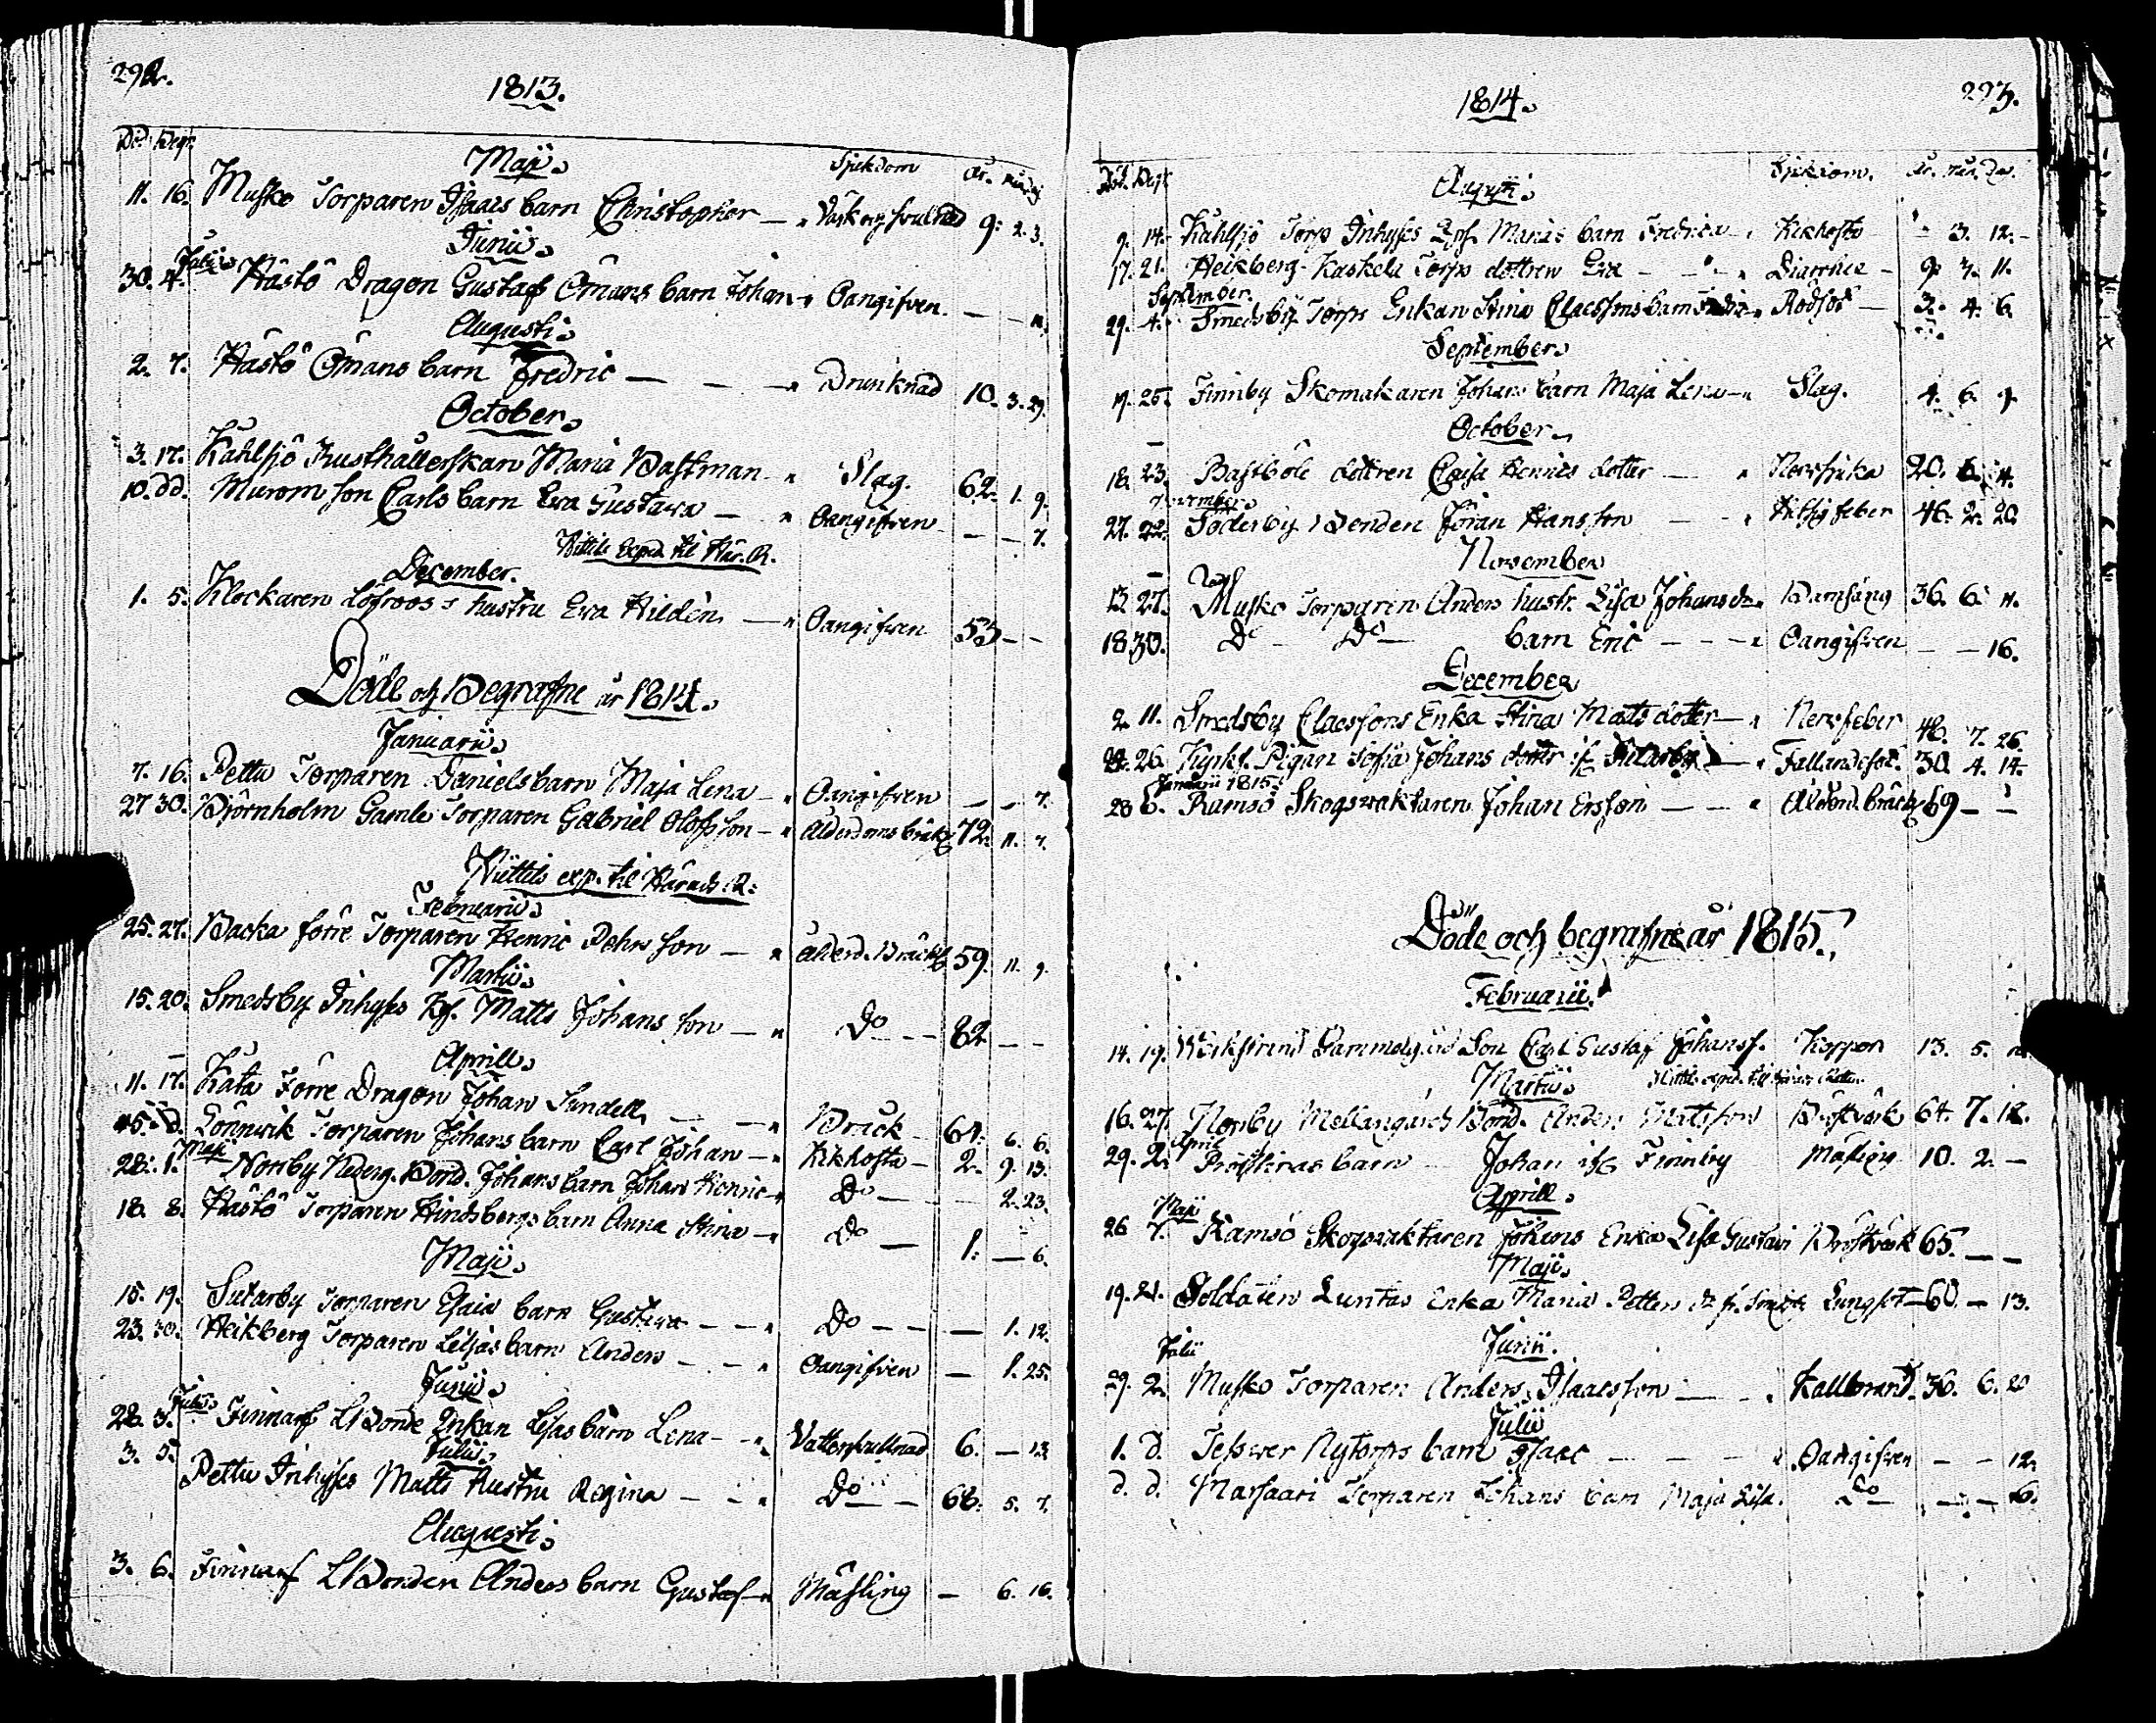 292.
1813.
Död. Begr.
Maji. Sjukdom År. Mån. D.
11. 16. Musko Torparen Isaacs barn Christopher — 9. 2. 3.
Junii.
30. Julii 4. Hästö Dragon Gustaf Ömans barn Johan Oangifven — — 11.
Augusti.
2. 7. Hästö Ömans barn Fredric — — Drunknad 10. 3. 29.
October.
3. 17. Kählsjö Rusthållerskan Maria Bastman Slag. 62. 1. 9.
10. dd. Muromson Carls barn Eva Gustava — Oangifven — — 7.
Hittils Exped. til Här. R.
December.
1. 5. Klockaren Löfroos's hustru Eva Hildén — Oangifven 53 — —
Döde och Begrafne år 1814.
Januarii.
7. 16. Pettu Torparen Daniels barn Maja Lena — Oangifven — — 7.
27 30. Björnholm Gamle Torparen Gabriel Olofsson — Ålderdoms bräckl 72. 11. 7.
Hittils exp. til Härads R:
Februarii.
25. 27. Backa förre Torparen Henric Pehrsson — Ålderd. Bräckl 59. 11. 9.
Martii.
15. 20. Smedsby Inhyses Kf. Matts Johansson — Do — — 82 — —
Aprill.
11. 17. Kåta Förre Dragon Johan Sundell — Bråck — 64. 6. 6.
15. d. Lönnwik Torparen Johans barn Carl Johan — Kikhosta — 2. 9. 13.
28. Maji 1. Norrby Nederg. Bond. Johans barn Johan Henric — Do — — 2. 23.
18. 8. Hästö Torparen Hindsbergs barn Anna Stina — Do — 1. — 6.
Maji.
15. 19. Sutarby Torparen Esaia barn Gustava — — Do — — — 1. 12.
23. 30. Heikberg Torparen Liljas barn Anders — — Oangifven — 1. 25.
Junii.
28. Julii 3. Finnarf LBonde Enkan Lisas barn Lena — Vattusvullnad 6. — 13
Julii.
3. 5. Pettu Inhyses Matts Hustru Regina — — Do — — 68. 5. 7.
Augusti.
3. 6. Finnarf LBonden Anders barn Gustaf — Mässling — 6. 16.
293.
1814.
Död. Begr.
Augusti. Sjukdom. År. Mån. Dag.
9. 14. Kählsjö Torp Inhyses Marias barn Fredrica Kikhosta — 3. 12.
17. 21. Heikberg Kaskela Torps dottren Eva — — Diarrhea — 9. 3. 11.
29. September 4. Smedsby Torps Enkan Stina Claessons barn Rödsot — 3. 4. 6
September.
19. 25. Finnby Skomakaren Johans barn Maja Lena — Slag. 4. 6. 9.
October.
18. 23. Bastböle dottren Caisa Henrics dotter — Nervsjuka 20. 6. 4.
27. November Söderby Bonden Jöran Hansson — — Hetsig feber 46. 2. 20.
November
13. 27. Musko Torparen Anders hustr. Lisa Johansdr. Barnsäng 36. 6. 11.
18 30. Do — Do — barn Eric — — — Oangifven — — 16.
December
2. 11. Smedsby Claessons Enka Stina Matts dotter — Nervfeber 48. 7. 26.
26. Kyrkf. Pigan Sofia Johans dotter if. Sutarby — Fallandesot. 30. 4. 14.
28 Januarii 1815. 6. Ramsö Skogsvaktaren Johan Ersson — — Ålderd. bräckl 69 — —
Döde och begrafne år 1815.
Februarii.
14. 19. Gammelgård Son Carl Gustaf Johansf. Koppor 13. 5.
Martii.
16. 27. Norrby Mellangårds Bond. Anders Mattsson Bröstvärk 64. 7. 12.
29. April 2. barn Johan if. Finnby Mässling 10. 2. —
Aprill.
26 Maji 7. Ramsö Skogsvaktaren Johans Enka Lisa Gustavi Bröstvärk 65. — —
Maji.
19. 21. Soldaten Luntas Enka Maria Petters dr Lungsot — 60. — 13.
Junii.
29. Julii 2. Musko Torparen Anders Isaacsson — Kallbrand. 36. 6. 20
Julii
1. d. Tesswer Nytorps barn Isaac — — — Oangifven — — 12.
d. d. Marsaari Torparen Johans barn Maja Lisa. Do — — — 6.